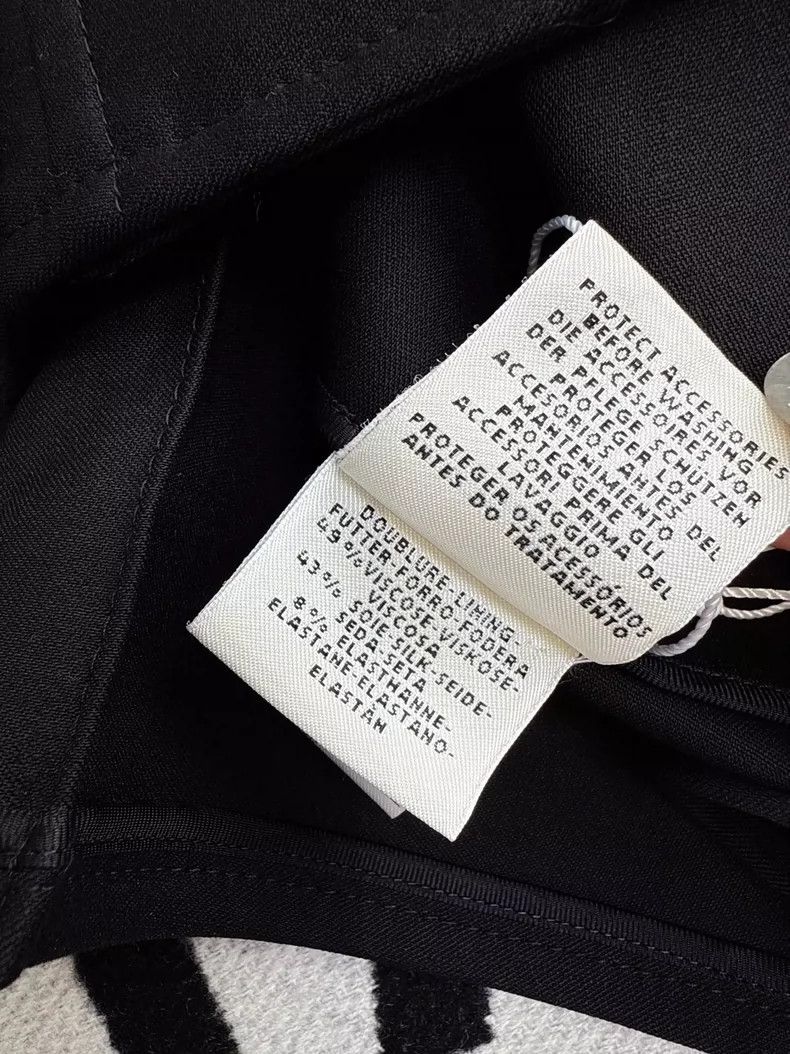 PROTECT ACCESSORIES
BEFORE WASHING
DIE ACCESSOIRES VOR
DER PFLEGE SCHÜTZEN
PROTEGER LOS
ACCESORIOS ANTES DEL
MANTENIMIENTO
PROTEGGERE GLI
ACCESSORI PRIMA DEL
LAVAGGIO
PROTEGER OS ACESSÓRIOS
ANTES DO TRATAMENTO
DOUBLURE-LINING-
FUTTER-FORRO-FODERA
49 % VISCOSE-VISKOSE-
VISCOSA
43 % SOIE-SILK-SEIDE-
SEDA-SETA
8 % ELASTHANNE-
ELASTANE-ELASTANO-
ELASTAN